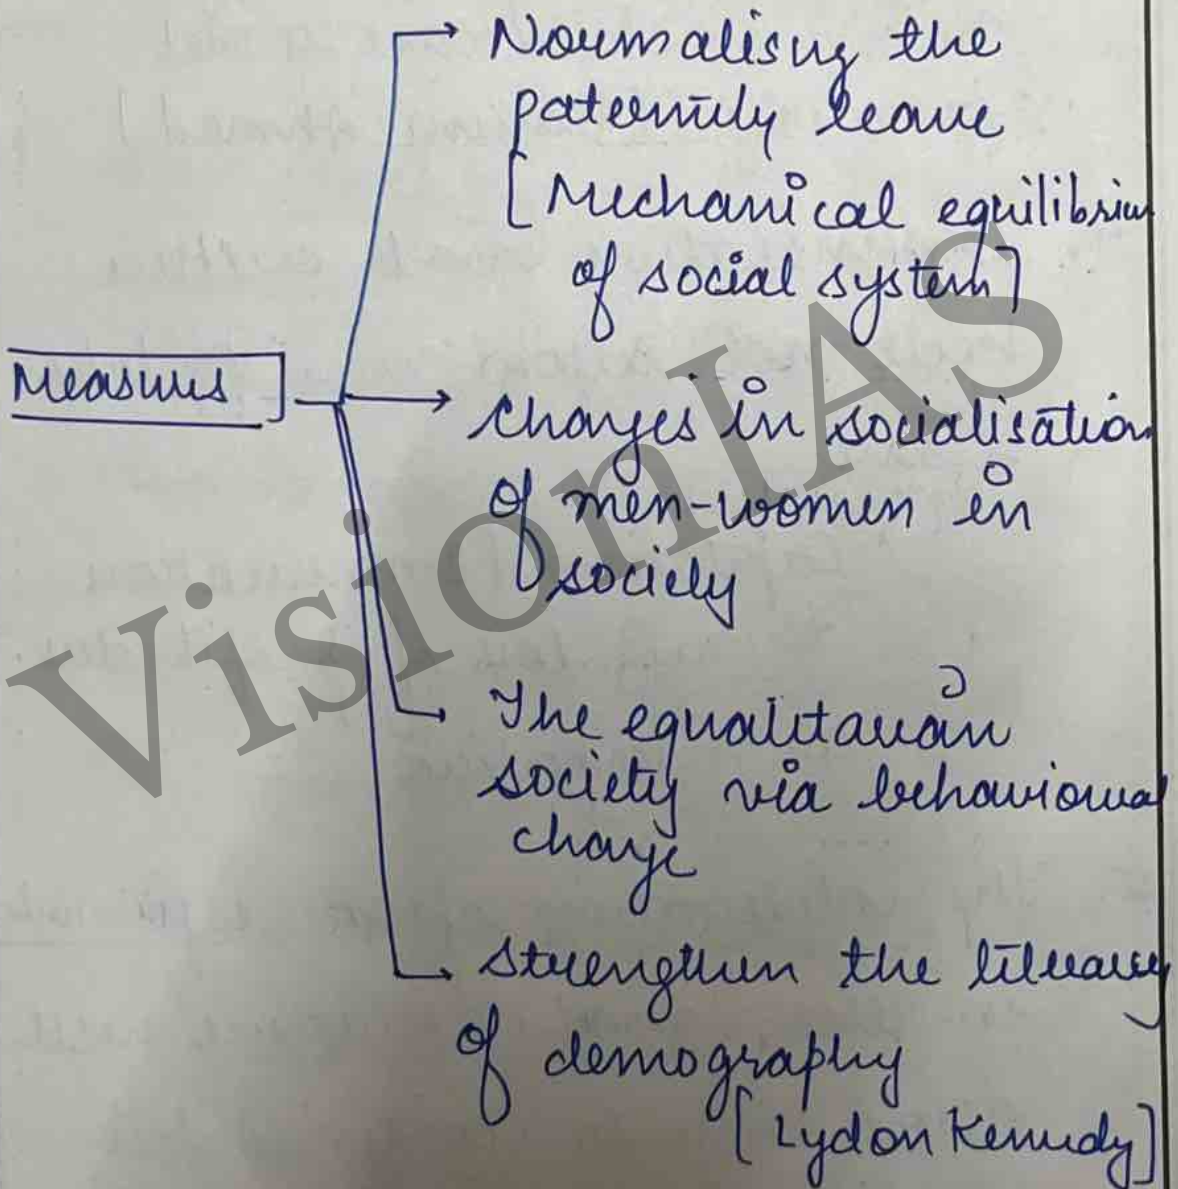 Normalising the
paternity leave
[Mechanical equilibrium
of social system]
Measures
Changes in socialisation
of men-women in
society
The equalitarian
society via behavioural
change
Strengthen the literacy
of demography
[Lydon Kennedy]
VisionIAS